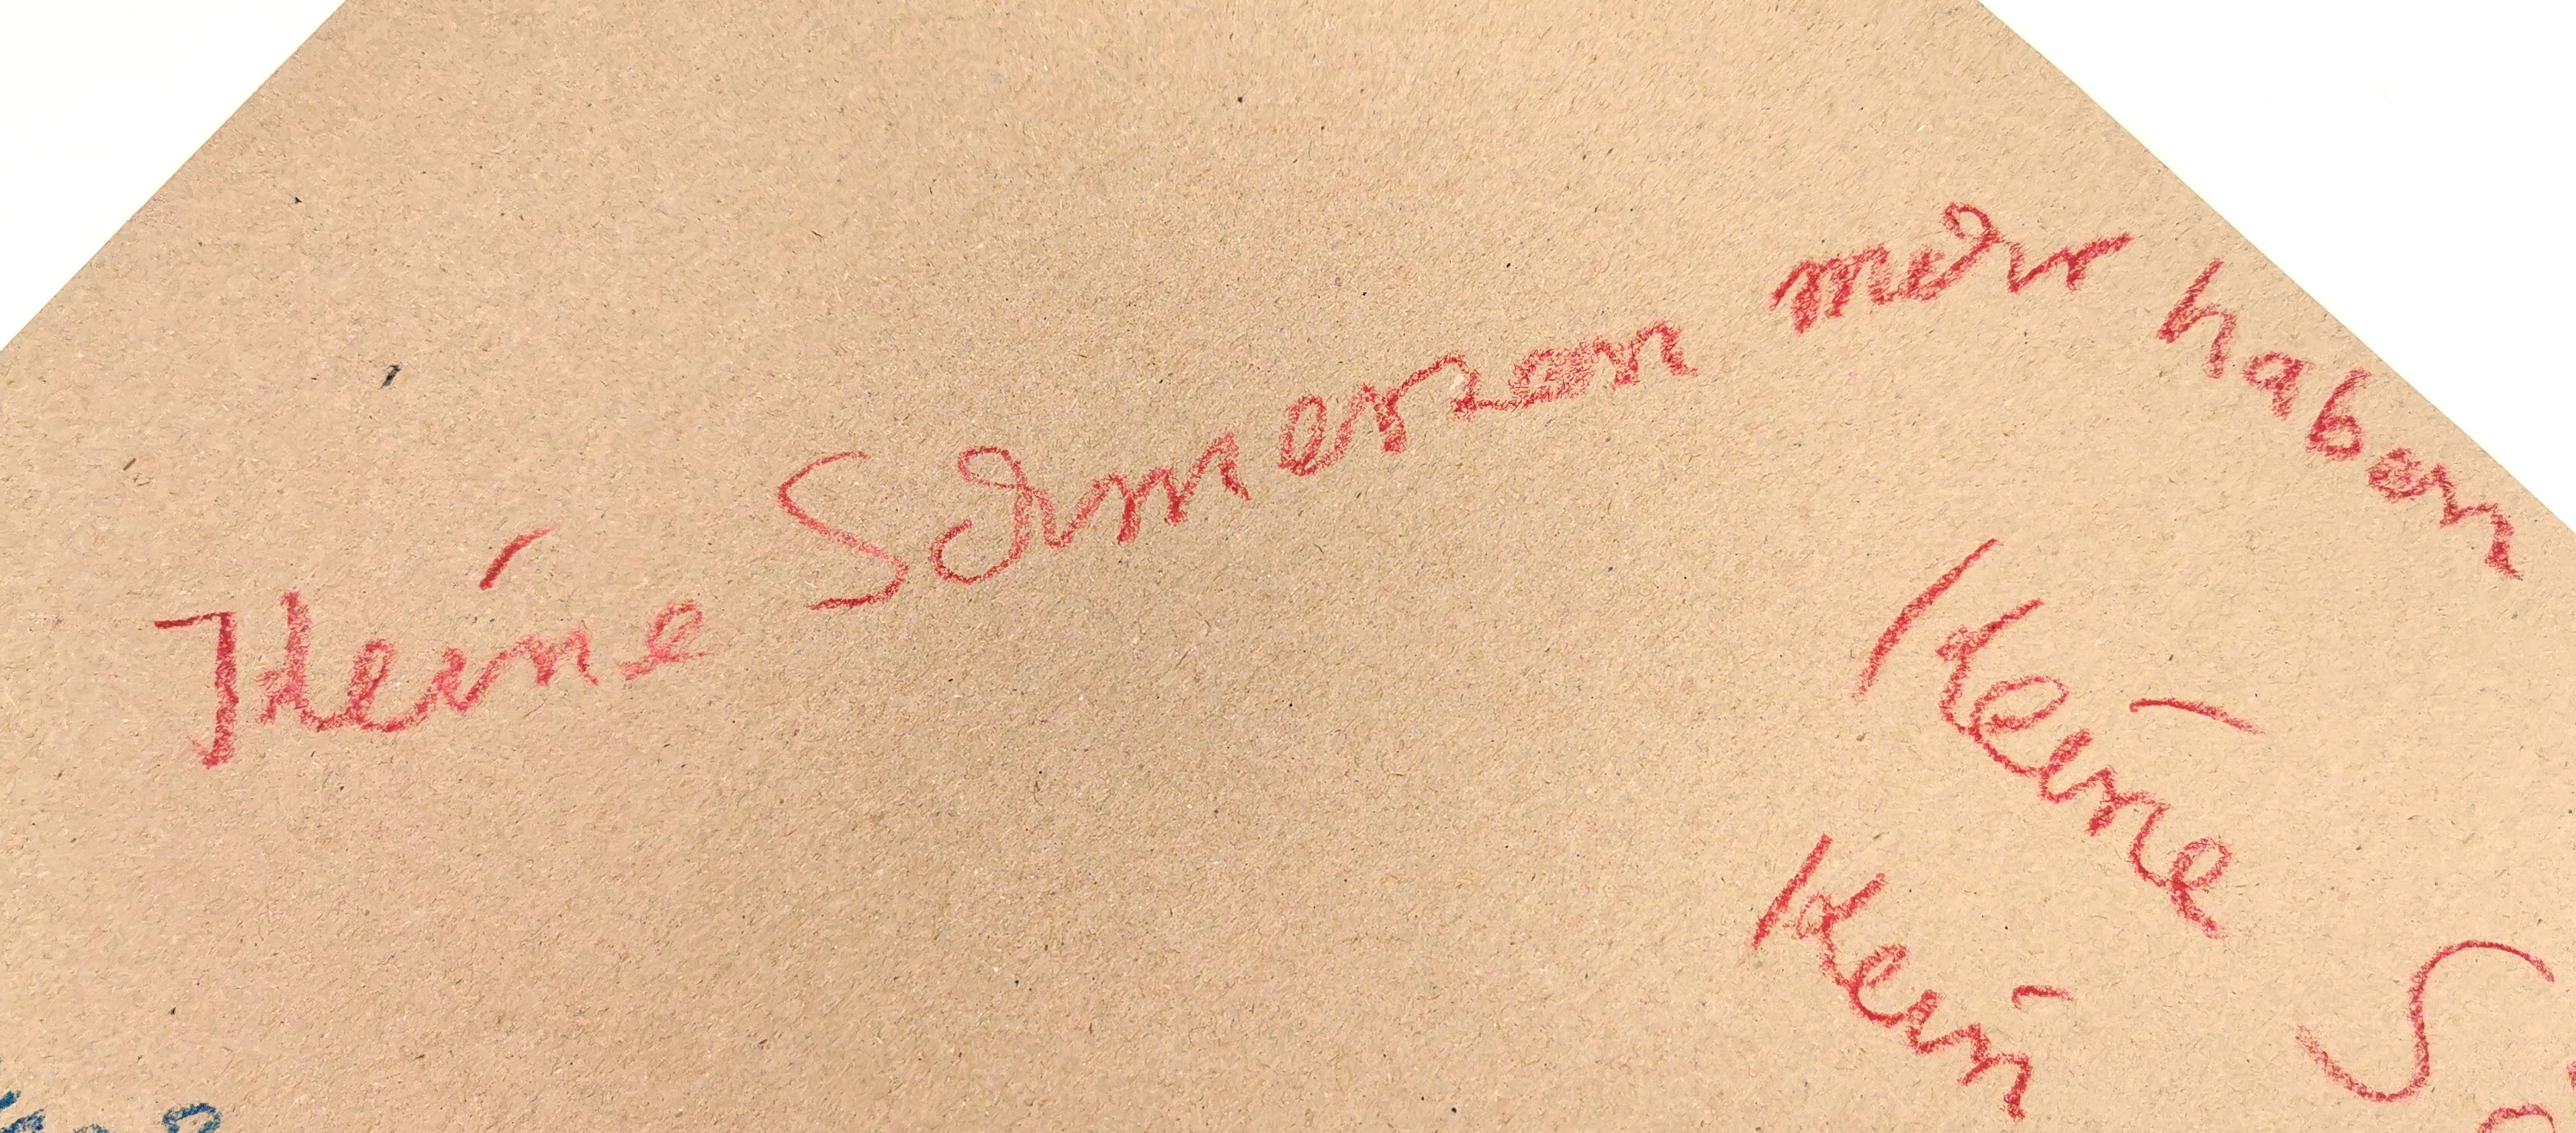 Keine Schmerzen mehr haben
Keine
Kein